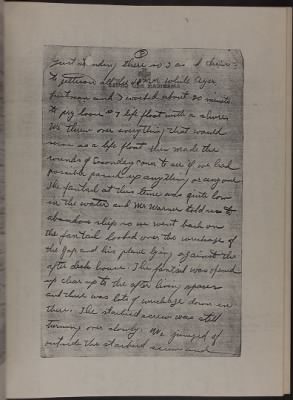 just standing there so I
to jettison at the while
and I worked about 20 minutes
to pry loose # 7 life float with a
We threw over everything that would
serve as a life float then made the
rounds of Secondary conn to see if we had
possible passed up anything or anyone
The fantail at this time was quite low
in the water and Mr Warner told us to
abandon ship so we went back on
the fantail looked over the wreckage of
the Jap and his plane lying against the
after deck house. The fantail was opened
up clear up to the after living spaces
and there was lots of wreckage down in
there. The starboard screw was still
turning over slowly. We jumped off
outside the starboard screw and